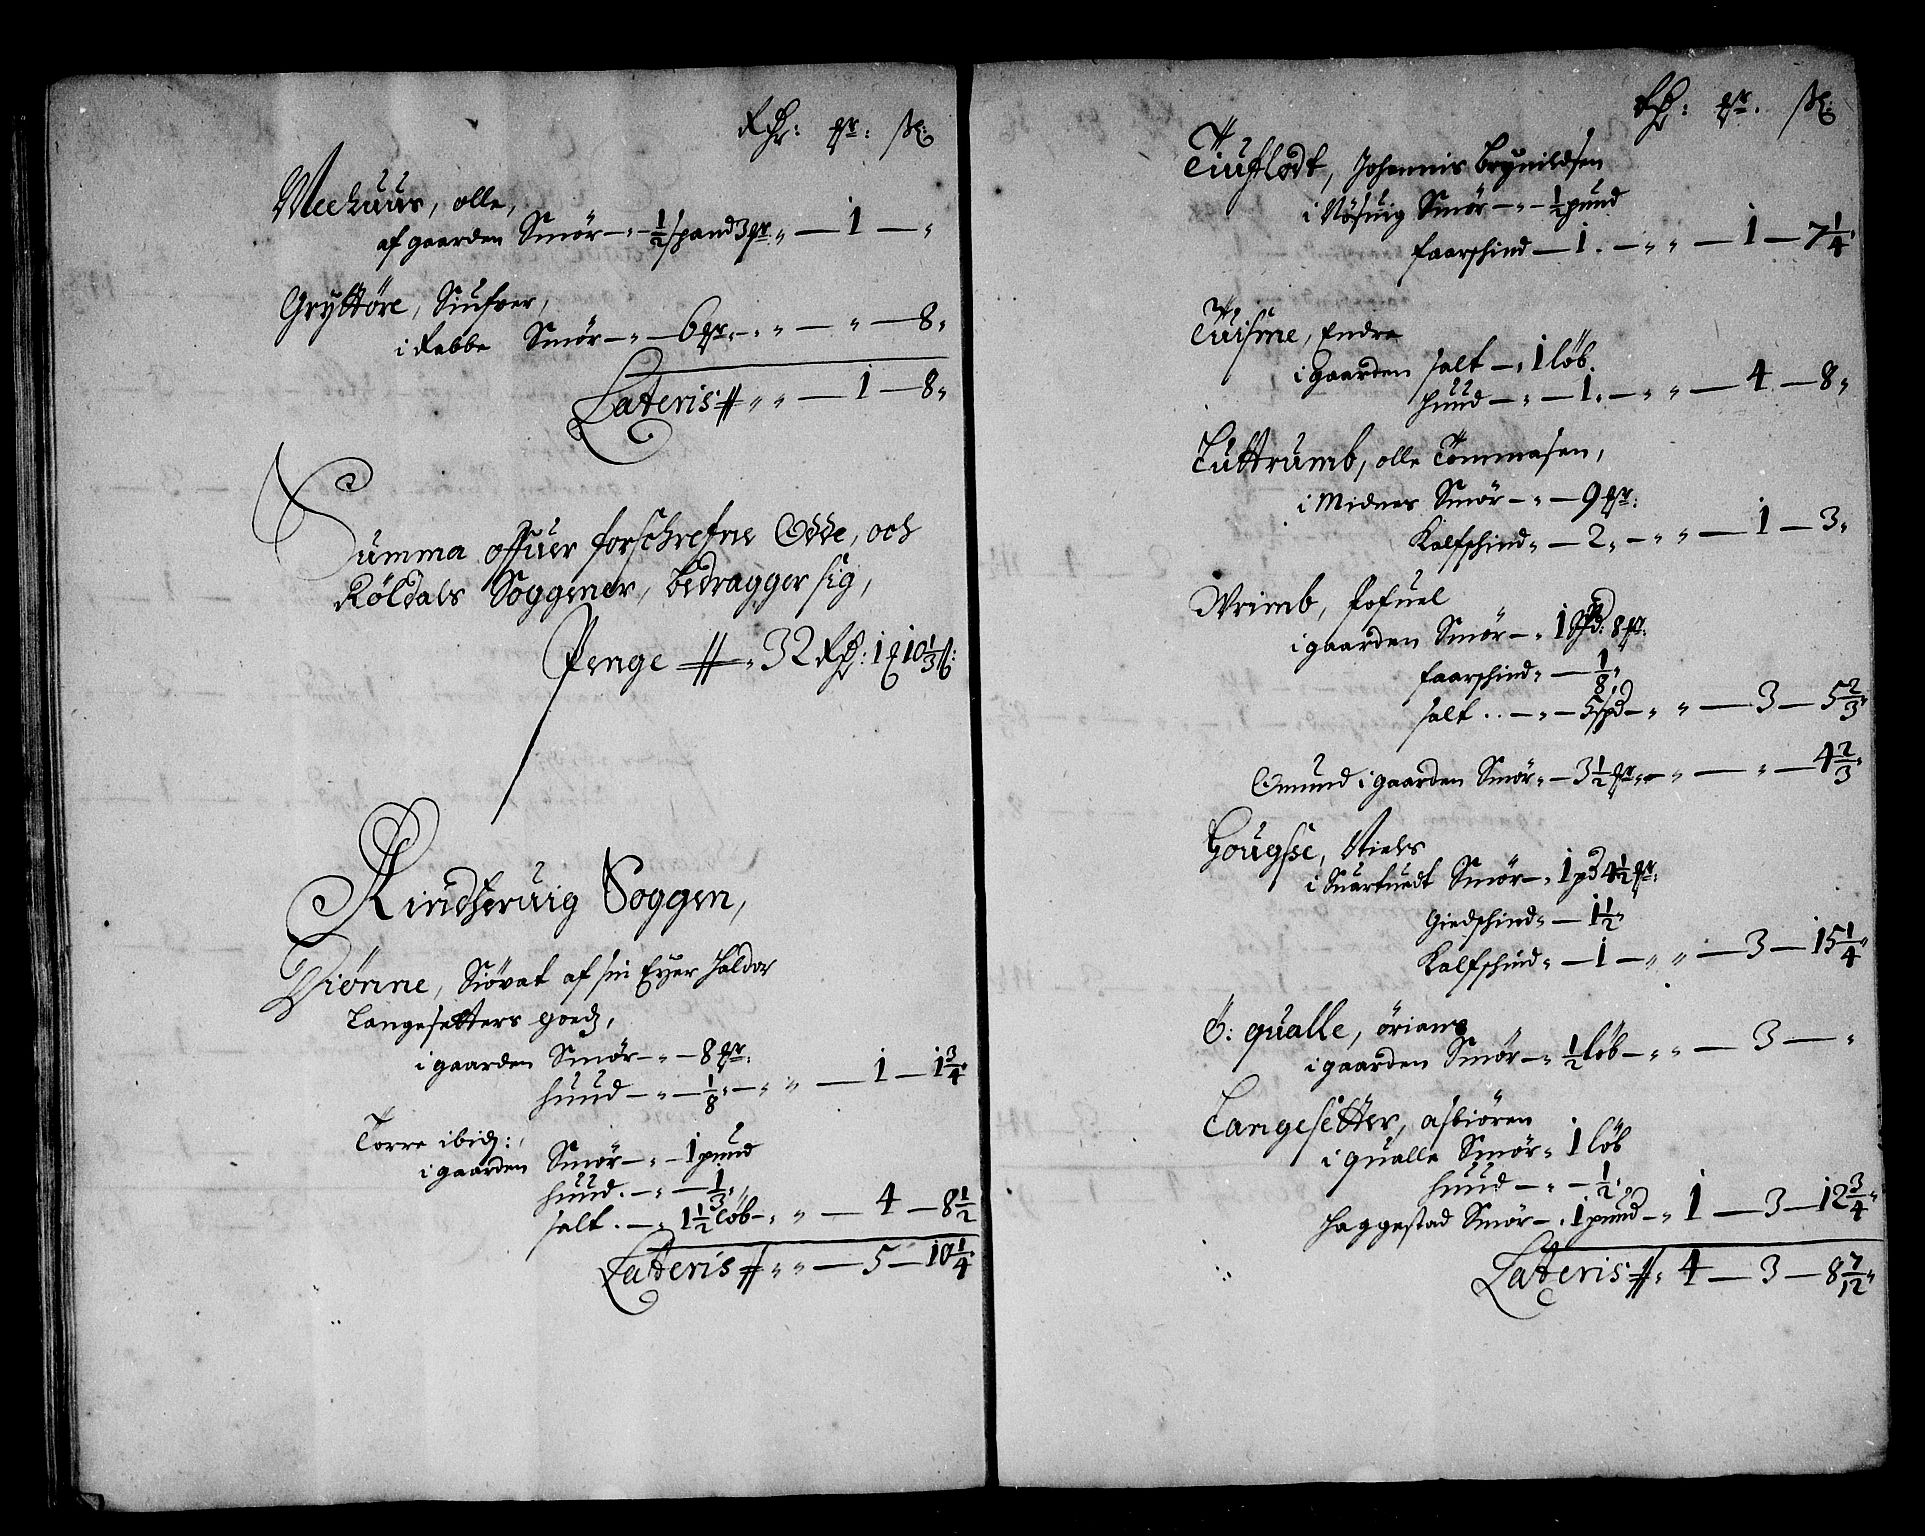 Rdr: ort: ß:
Meehuus, olle,
af gaarden Smör — " — ½ spand 3 mr. " — 1 — "
Gryttöre, Siufver,
i Rabbe Smör — " — 6 mr. — " " — " — 8 "
Lateris # " " — 1 — 8 "
Summa offuer forschrefne Odde, och
Röldals Soggener, bedragger sig,
Penge # " 32 Rdr: 1 ort 10⅓ ß:
Kindseruig Soggen,
Diönne, Siövat af sin Eyer Haldor
Langesetters goeds,
i gaarden Smör — " — 8 mr.
huud — " — ⅛ " — " " — 1 — 1¾ "
Torre ibid:,
i gaarden Smör — " — 1 pund
huud. — " — ⅓ "
salt. — " 1½ löb — " " — 4 — 8½
Lateris # " " — 5 — 10¼
Rdr: ort. ß:
Tiuflodt, Johannis Brynildsen
i Nösuig Smör — " — ½ pund
faarschind — 1. — " " — 1 — 7¼ "
Tuisme, Endre
i gaarden salt — " 1 löb.
huud — " — 1. — " " — 4 — 8 "
Luttrumb, olle Tommasen,
i Midnes Smör — " — 9 mr:
Kalfschind " — 2 " — " " — 1 — 3 "
Wrimb, Pofuel
i gaarden Smör — " 1 Spd: 8 mr:
faarschind " — ⅛ "
salt . . — " — 5 spd — " " — 3 — 5⅔ "
Omund i gaarden Smör " — 3½ mr. — " — " — 4⅔ "
Hougsse, Niels
i Suartuedt Smör — " 1 pd 4½ mr:
Giedschind " — 1½ "
Kalfschind " — 1 — " " — 3 — 15¼ "
Ö: qualle, örians
i gaarden Smör — " ½ löb — " " — 3 — "
Langesetter, asbiören
i qualle Smör " 1 löb
huud — " — ½ "
Haggestad Smör — " 1 pund — " 1 — 3 — 12¾ "
Lateris # " 4 — 3 — 8 7/12 "